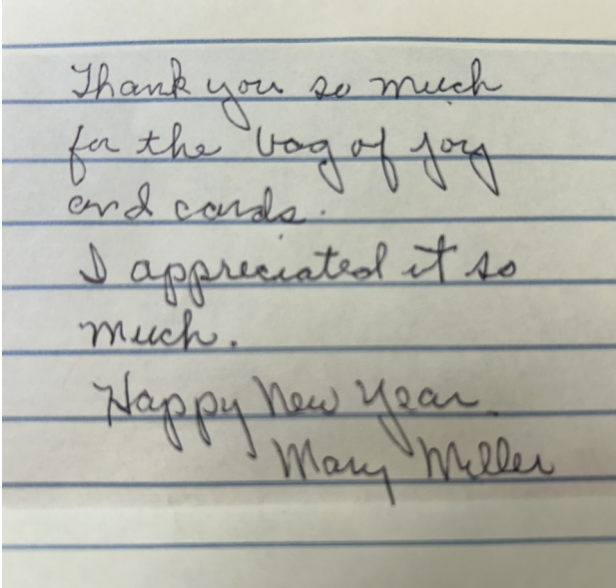 Thank you so much
for the bag of joy
and cards.
I appreciated it so
much.
Happy New Year
Mary Miller